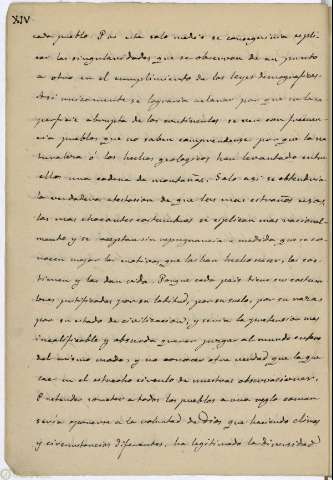 XIV
cada pueblo. Por este solo medio se conseguiria espli-
car las singularidades que se observan de un punto
á otro en el cumplimiento de las leyes demograficas.
Asi unicamente se lograria aclarar por que en la su-
perficie abrupta de los continentes, se ven con frecuen-
cia pueblos que no saben comprenderse porque la na-
turaleza ó los hechos geologicos han levantado entre
ellos una cadena de montañas. Solo asi se obtendria
la verdadera de que los mas estraños usos,
las mas chocantes costumbres se esplican mas racional-
mente y se aceptan sin repugnancia á medida que se co-
nocen mejor los motivos que las han hecho nacer, las sos-
tienen y las dan vida. Porque cada pais tiene sus costum-
bres justificadas por su latitud, por su suelo, por su raza,
por su estado de civilizacion, y seria la pretension mas
incalificable y absurda querer juzgar al mundo entero
del mismo modo, y no conocer otra verdad que la que
cae en el estrecho circulo de nuestras observaciones.
Pretender someter a todos los pueblos a una regla comun
seria oponerse a la voluntad de Dios que haciendo climas
y circunstancias diferentes, ha legitimado la diversidad